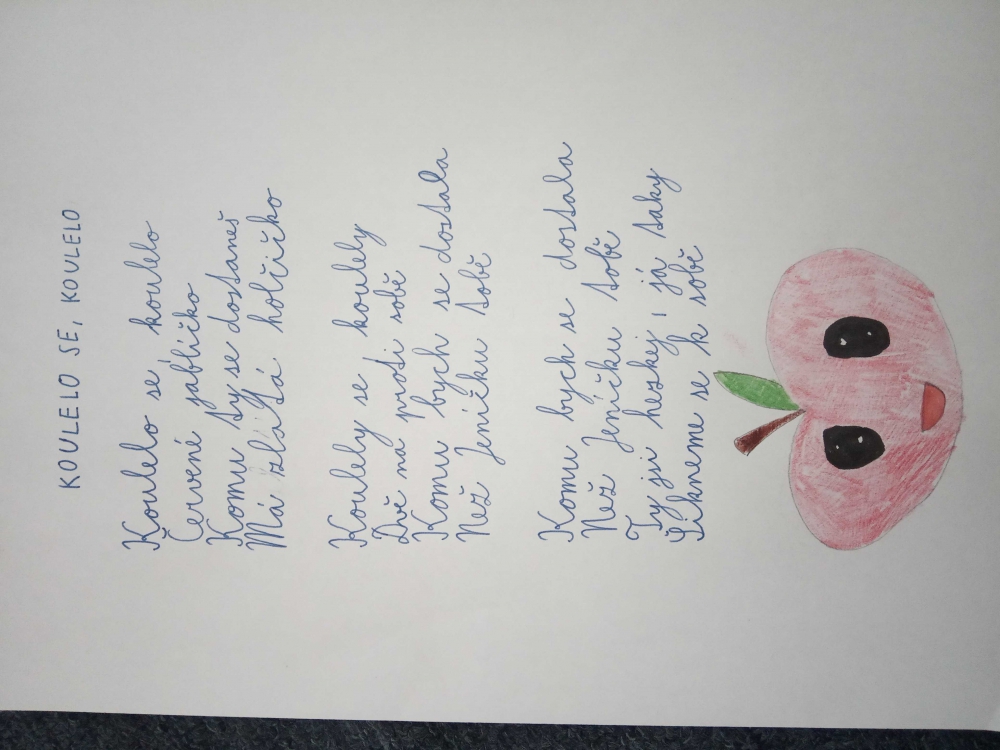 KOULELO SE, KOULELO
Koulelo se koulelo
Červené jablíčko
Komu ty se dostaneš
Má zlatá holčičko
Koulely se koulely
Dvě na proti sobě
Komu bych se dostala
Než Jeníčku tobě
Komu bych se dostala
Než Jeníčku tobě
Ty jsi hezkej, já taky
Šikneme se k sobě